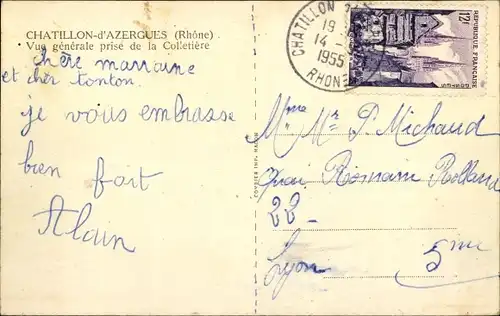 CHATILLON-d'AZERGUES (Rhône)
Vue générale prise de la Colletière
chère marraine
et cher tonton.
je vous embrasse
bien fort
Alain
CHATILLON
19
14 -
1955
RHONE
12F
REPUBLIQUE FRANÇAISE
COMBIER IMP. MACON
Mme Mr P. Michaud
Quai Romain Rolland
22 -
Lyon 5me